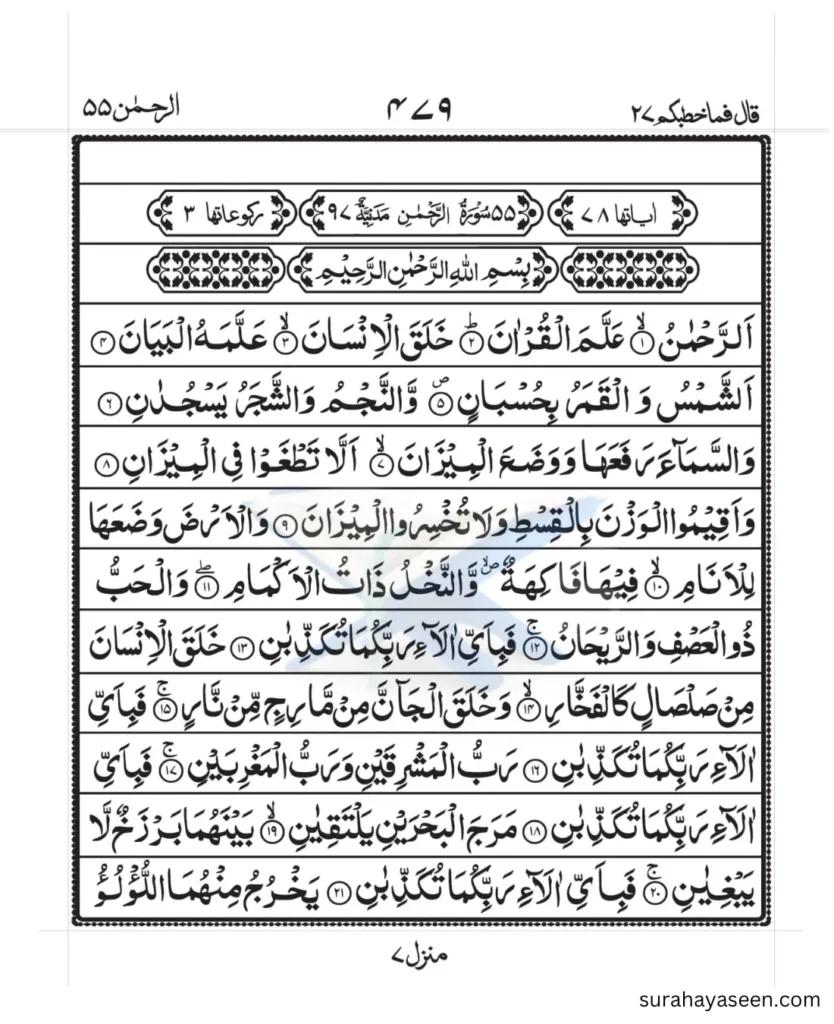 قال فما خطبكم ٢٧ ٤٧٩ الرحمٰن ٥٥
اٰیاتها ٧٨ ٥٥ سُوْرَةُ الرَّحْمٰنِ مَدَنِيَّةٌ ٩٧ رکوعاتها ٣
بِسْمِ اللّٰهِ الرَّحْمٰنِ الرَّحِيْمِ
اَلرَّحْمٰنُ ۙ﴿١﴾ عَلَّمَ الْقُرْاٰنَ ؕ﴿٢﴾ خَلَقَ الْاِنْسَانَ ۙ﴿٣﴾ عَلَّمَهُ الْبَيَانَ ﴿٤﴾
اَلشَّمْسُ وَ الْقَمَرُ بِحُسْبَانٍ ۪﴿٥﴾ وَّالنَّجْمُ وَالشَّجَرُ يَسْجُدٰنِ ﴿٦﴾
وَالسَّمَآءَ رَفَعَهَا وَوَضَعَ الْمِيْزَانَ ۙ﴿٧﴾ اَلَّا تَطْغَوْا فِى الْمِيْزَانِ ﴿٨﴾
وَاَقِيْمُوا الْوَزْنَ بِالْقِسْطِ وَلَا تُخْسِرُوا الْمِيْزَانَ ﴿٩﴾ وَالْاَرْضَ وَضَعَهَا
لِلْاَنَامِ ۙ﴿١٠﴾ فِيْهَا فَاكِهَةٌ ۪ۙ وَّالنَّخْلُ ذَاتُ الْاَكْمَامِ ۖ﴿١١﴾ وَالْحَبُّ
ذُو الْعَصْفِ وَالرَّيْحَانُ ۚ﴿١٢﴾ فَبِاَىِّ اٰلَآءِ رَبِّكُمَا تُكَذِّبٰنِ ﴿١٣﴾ خَلَقَ الْاِنْسَانَ
مِنْ صَلْصَالٍ كَالْفَخَّارِ ۙ﴿١٤﴾ وَخَلَقَ الْجَآنَّ مِنْ مَّارِجٍ مِّنْ نَّارٍ ۚ﴿١٥﴾ فَبِاَىِّ
اٰلَآءِ رَبِّكُمَا تُكَذِّبٰنِ ﴿١٦﴾ رَبُّ الْمَشْرِقَيْنِ وَرَبُّ الْمَغْرِبَيْنِ ۚ﴿١٧﴾ فَبِاَىِّ
اٰلَآءِ رَبِّكُمَا تُكَذِّبٰنِ ﴿١٨﴾ مَرَجَ الْبَحْرَيْنِ يَلْتَقِيٰنِ ۙ﴿١٩﴾ بَيْنَهُمَا بَرْزَخٌ لَّا
يَبْغِيٰنِ ۚ﴿٢٠﴾ فَبِاَىِّ اٰلَآءِ رَبِّكُمَا تُكَذِّبٰنِ ﴿٢١﴾ يَخْرُجُ مِنْهُمَا اللُّؤْلُؤُ
منزل ٧
surahayaseen.com